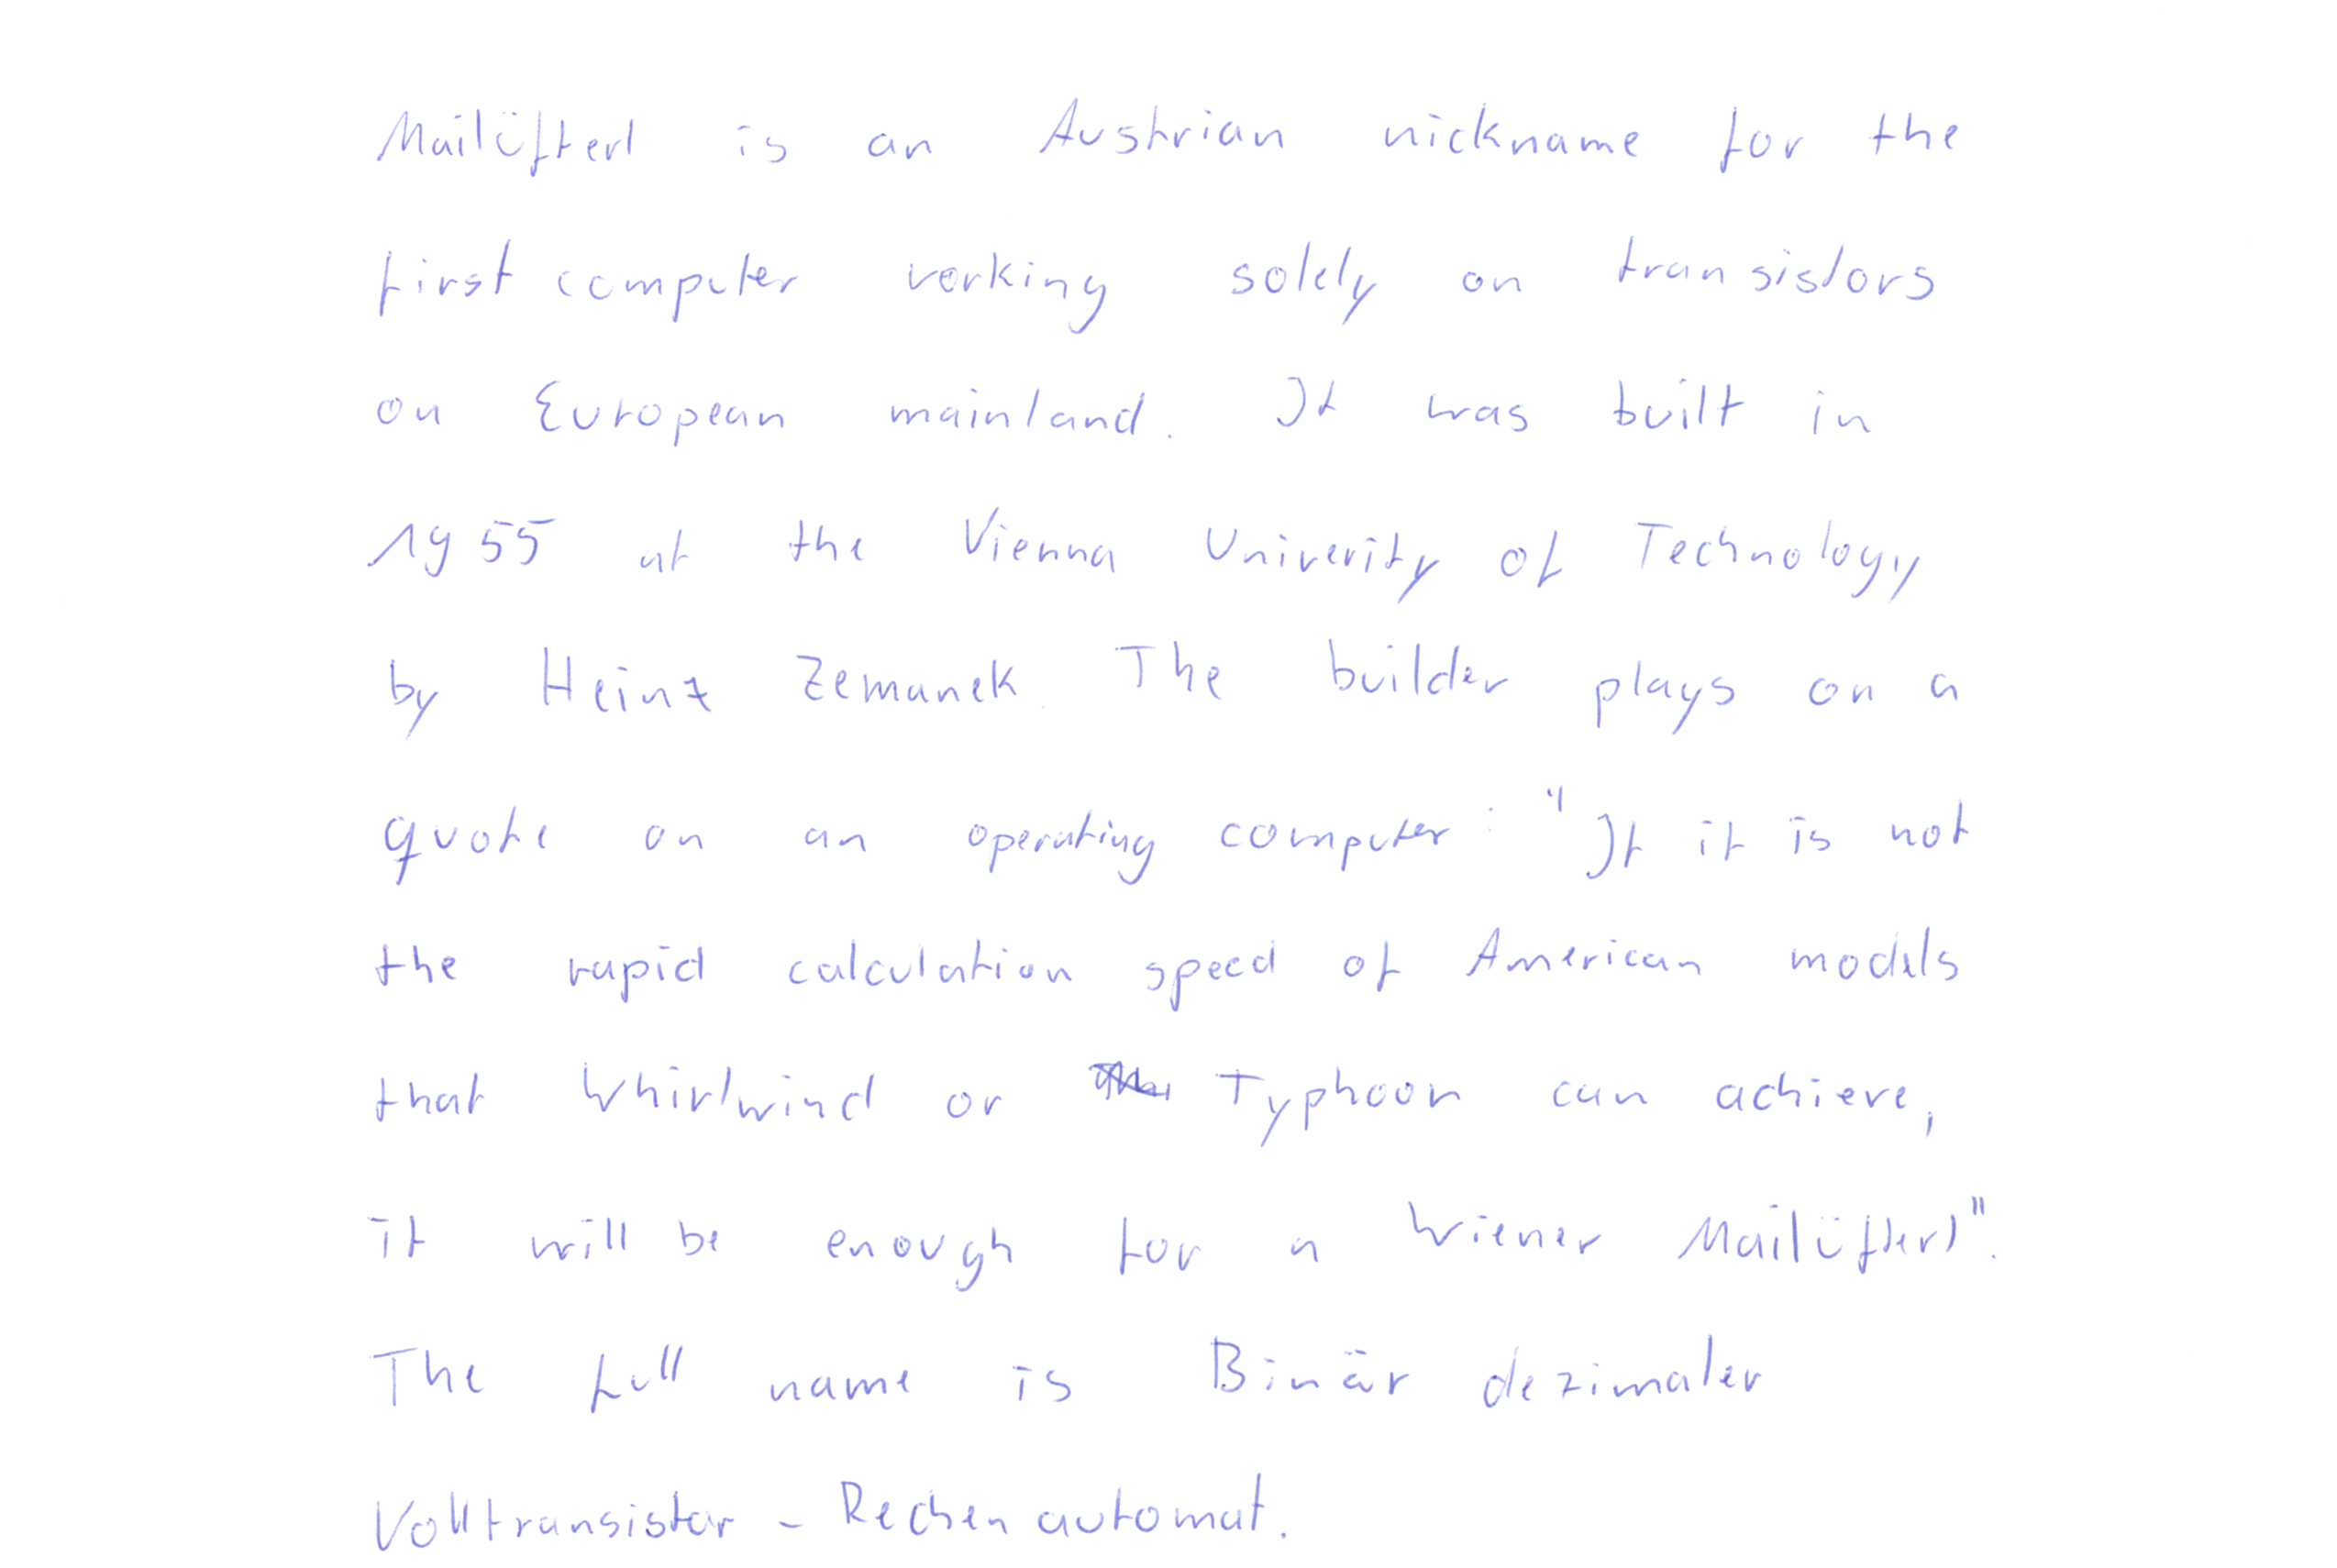 Mailüfterl is an Austrian nickname for the
first computer working solely on transistors
on European mainland. It was built in
1955 at the Vienna Univerity of Technology,
by Heinz Zemanek. The builder plays on a
quote on an operating computer: "If it is not
the rapid calculation speed of American models
that Whirlwind or Typhoon can achieve,
it will be enough for a Wiener Mailüfterl".
The full name is Binär dezimaler
Volltransistor - Rechenautomat.